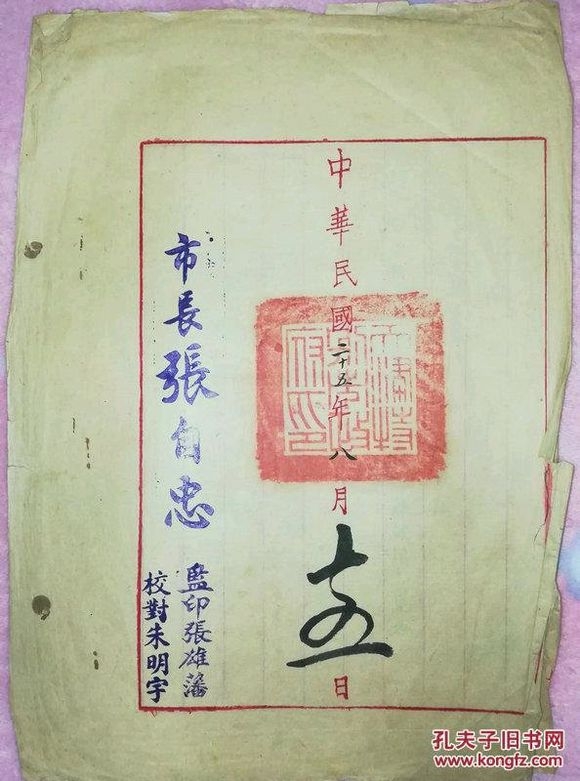 中華民國二十五年八月十五日
市長張自忠
監印張雄藩
校對朱明宇
孔夫子旧书网
www.kongfz.com